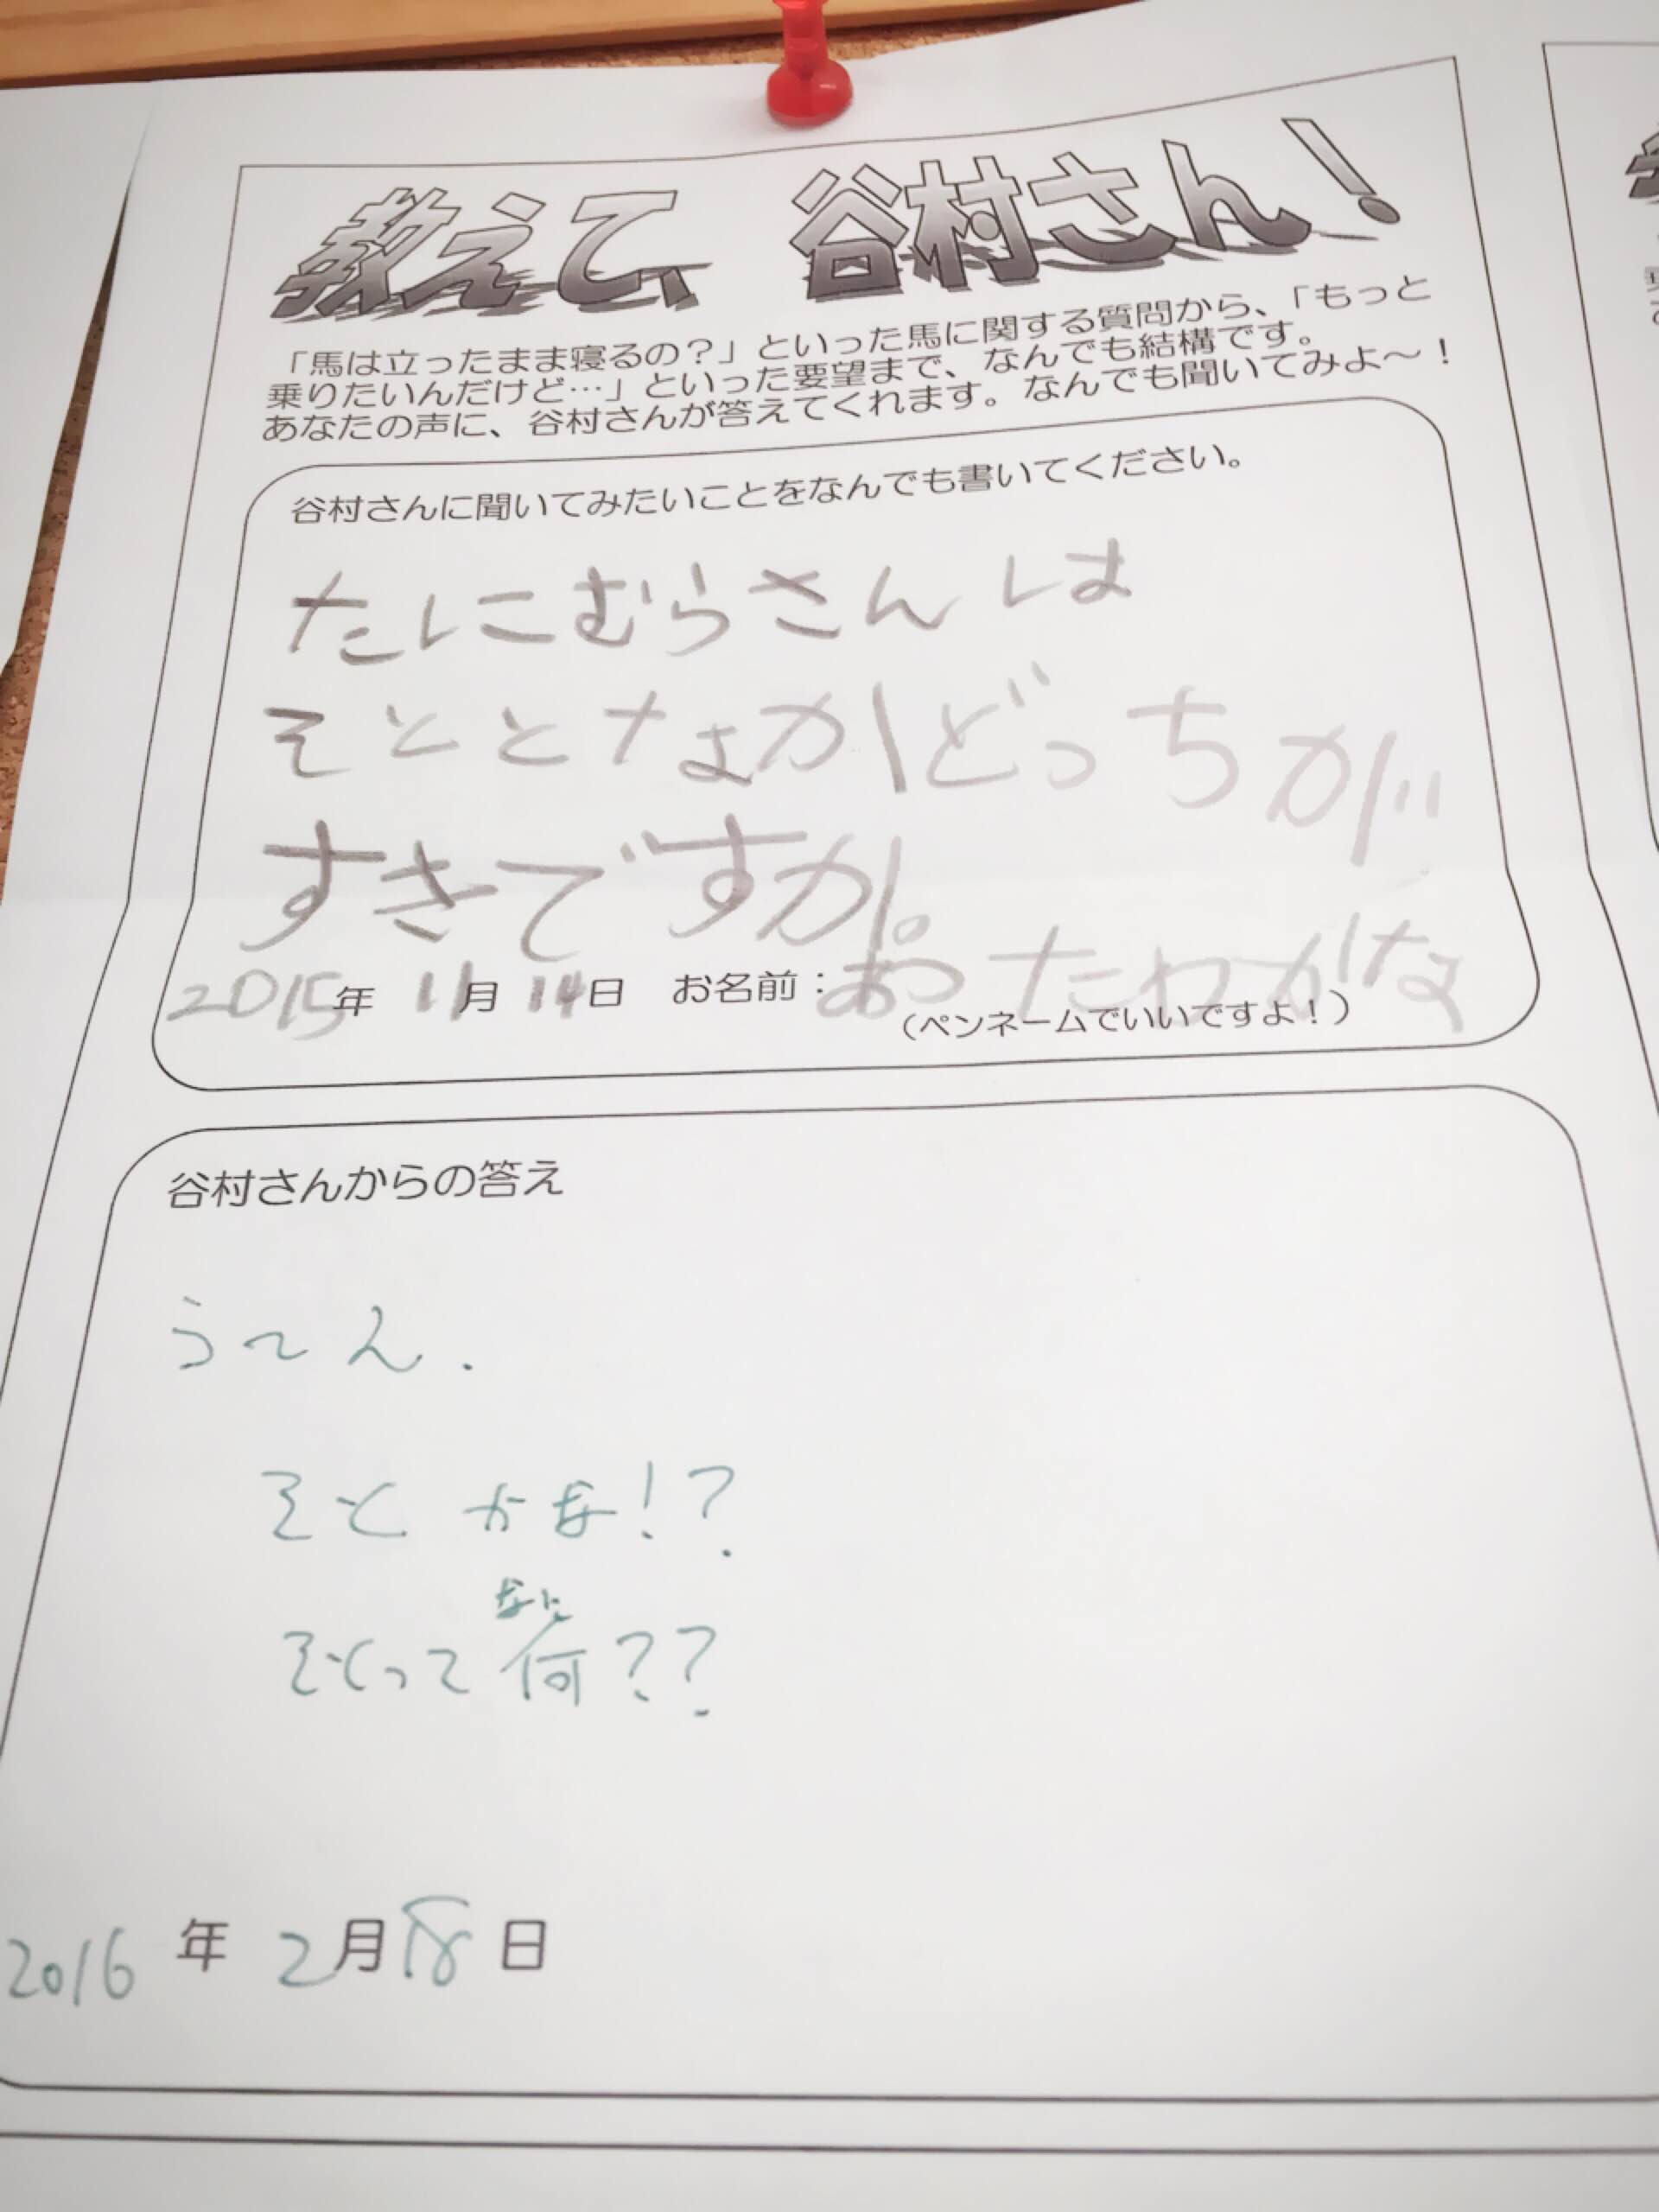 教えて、谷村さん！
「馬は立ったまま寝るの？」といった馬に関する質問から、「もっと
乗りたいんだけど…」といった要望まで、なんでも結構です。
あなたの声に、谷村さんが答えてくれます。なんでも聞いてみよ～！
谷村さんに聞いてみたいことをなんでも書いてください。
たにむらさんは
そととなかどっちが
すきですか。
2015年 11月 14日 お名前：おつたわかな
（ペンネームでいいですよ！）
谷村さんからの答え
う～ん．
そとかな！？
なに
そとって何？？
2016年 2月18日